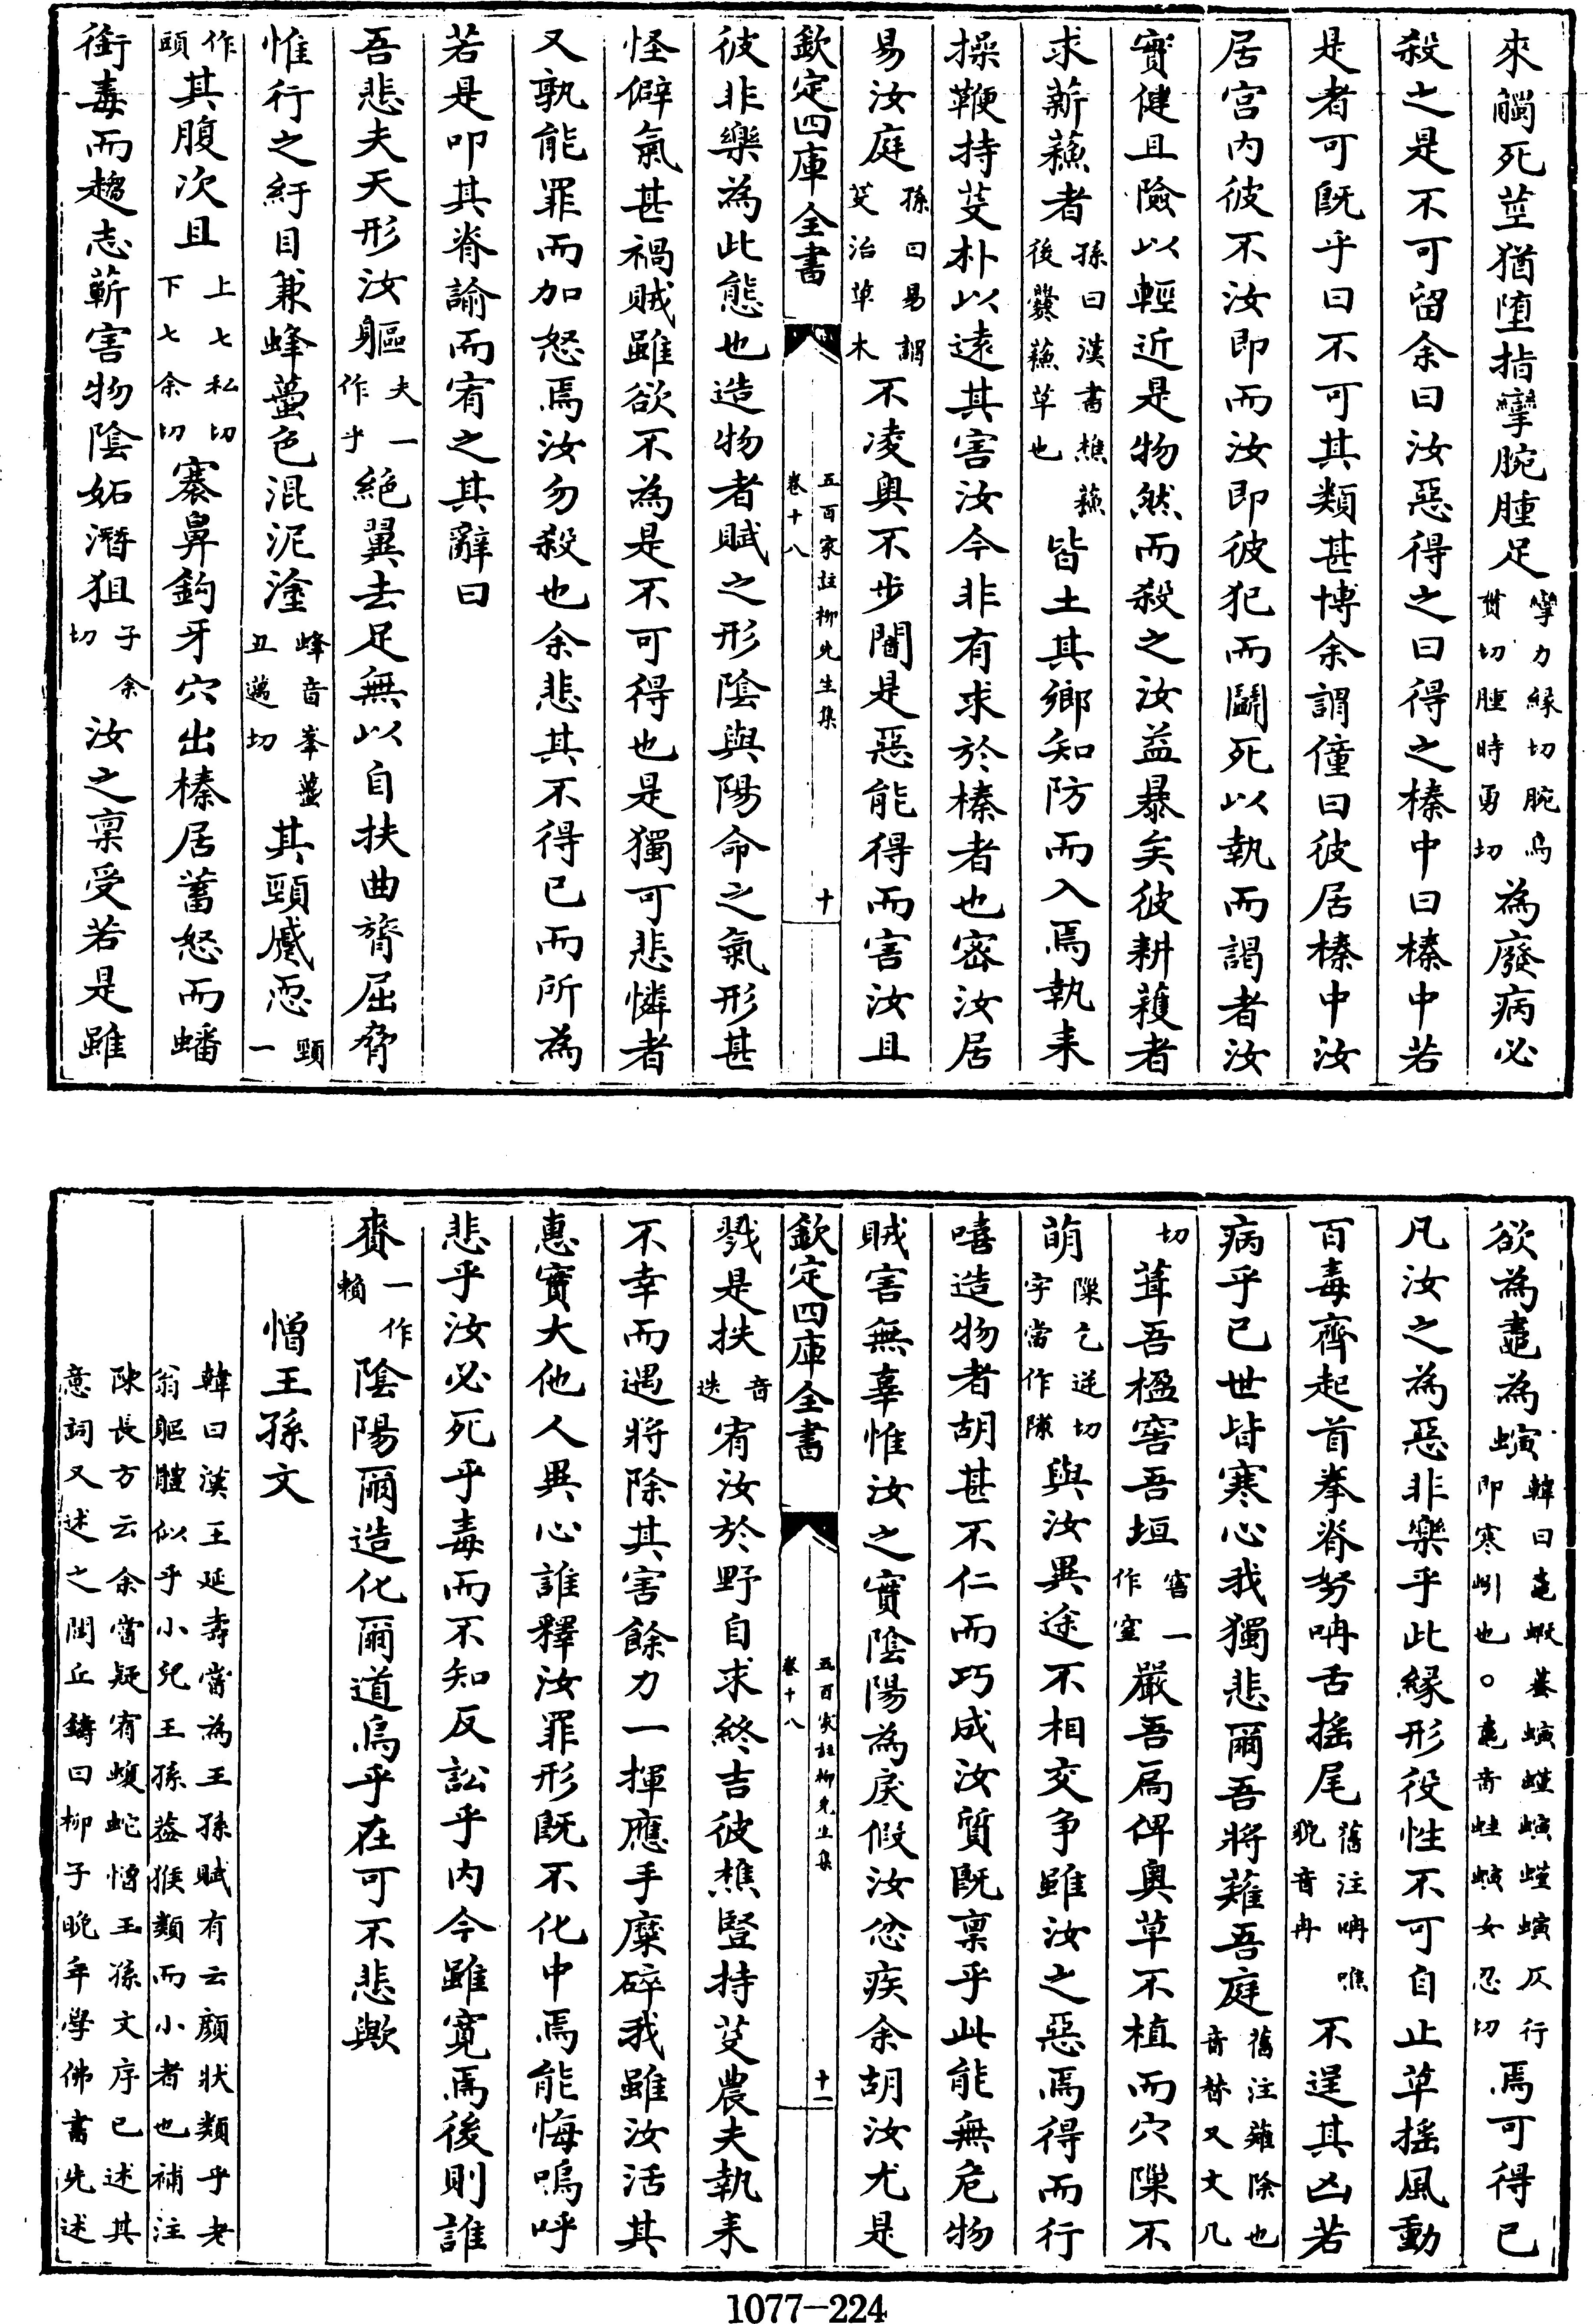 來觸死莖猶墮指攣腕腫足攣力緣切腕烏貫切腫時勇切為廢病必
殺之是不可留余曰汝惡得之曰得之榛中曰榛中若
是者可既乎曰不可其類甚博余謂僮曰彼居榛中汝
居宮内彼不汝即而汝即彼犯而鬭死以執而謁者汝
實健且險以輕近是物然而殺之汝益暴矣彼耕穫者
求薪蘓者孫曰漢書樵蘓後爨蘓草也皆土其鄉知防而入焉執耒
操鞭持芟朴以逺其害汝今非有求於榛者也密汝居
易汝庭孫曰易謂芟治草木不凌奥不步闇是惡能得而害汝且
欽定四庫全書
五百家註柳先生集
卷十八
十
彼非樂為此態也造物者賦之形隂與陽命之氣形甚
怪僻氣甚禍賊雖欲不為是不可得也是獨可悲憐者
又孰能罪而加怒焉汝勿殺也余悲其不得已而所為
若是叩其脊諭而宥之其辭曰
吾悲夫天形汝軀夫一作乎絶翼去足無以自扶曲膂屈脅
惟行之紆目兼蜂蠆色混泥塗蜂音峯蠆丑邁切其頸蹙恧頸一
作頤其腹次且上七私切下七余切褰鼻鉤牙穴出榛居蓄怒而蟠
銜毒而趨志蘄害物隂妬潛狙子余切汝之禀受若是雖
欲為鼃為螾韓曰鼃蝦蟇螾螼螾螼螾仄行即寒蚓也○鼃音蛙螾女忍切焉可得已
凡汝之為惡非樂乎此縁形役性不可自止草搖風動
百毒齊起首拳脊努呥舌搖尾舊注呥噍貌音冉不逞其凶若
病乎已世皆寒心我獨悲爾吾將薙吾庭舊注薙除也音替又文几
切葺吾楹窖吾垣窖一作窒嚴吾扃俾奥草不植而穴隟不
萌隟乞逆切字當作隙與汝異途不相交争雖汝之惡焉得而行
嘻造物者胡甚不仁而巧成汝質既禀乎此能無危物
賊害無辜惟汝之實隂陽為戾假汝忿疾余胡汝尤是
欽定四庫全書
五百家註柳先生集
卷十八
十一
戮是抶音迭宥汝於野自求終吉彼樵豎持芟農夫執耒
不幸而遇將除其害餘力一揮應手糜碎我雖汝活其
惠實大他人異心誰釋汝罪形既不化中焉能悔嗚呼
悲乎汝必死乎毒而不知反訟乎内今雖寛焉後則誰
賚一作賴隂陽爾造化爾道烏乎在可不悲歟
憎王孫文
韓曰漢王延壽嘗為王孫賦有云顔狀類乎老翁軀體似乎小兒王孫葢猴類而小者也補注
陳長方云余嘗疑宥蝮蛇憎王孫文序已述其意詞又述之閭丘鑄曰柳子晚年學佛書先述
1077-224